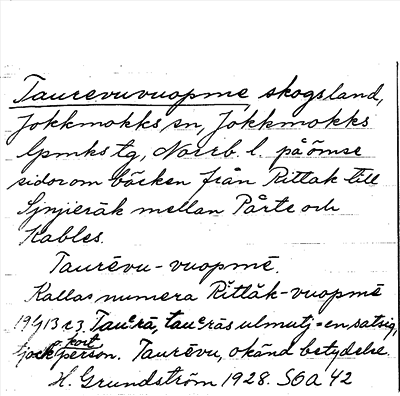 Taurevuvuopme, skogsland,
Jokkmokks sn, Jokkmokks
lpmks tg, Norrb. l. på ömse
sidor om bäcken från Ritlak till
Sjnjieräk mellan Pårte och
Kables.
Taurēvu-vuopmē.
Kallas numera Ritlåk-vuopmē
19413 c3. Tauᵉrā, tauᵉrās ulmutj = en satsig,
kort
tjock person. Taurēvu, okänd betydelse.
H. Grundström 1928. SOA 42